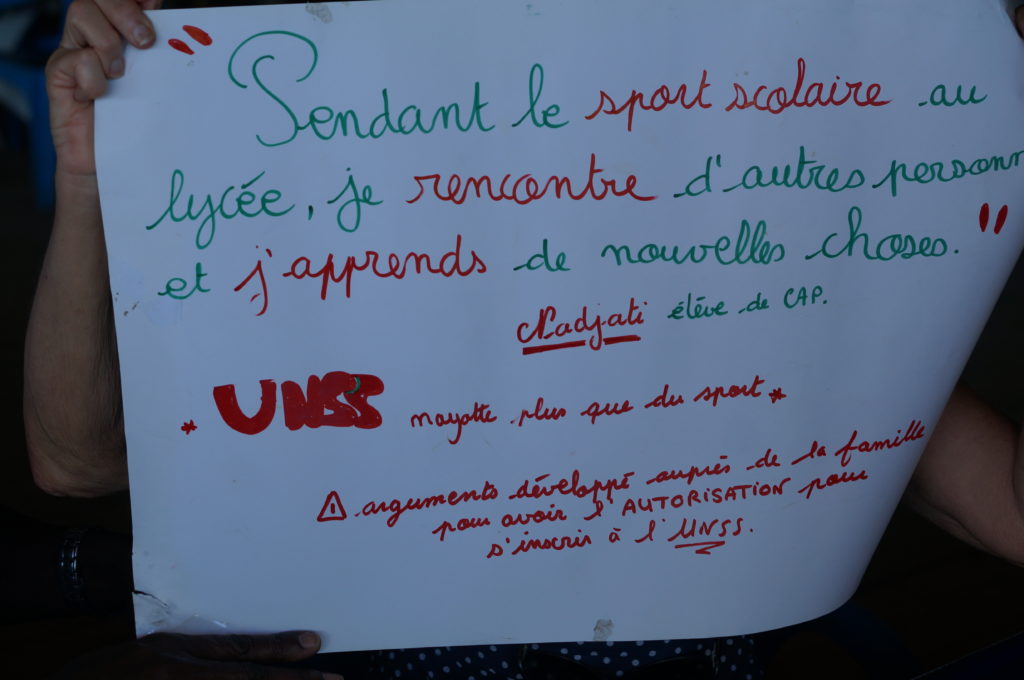 " Pendant le sport scolaire au
lycée, je rencontre d'autres personn
et j'apprends de nouvelles choses. "
Nadjati élève de CAP.
* UNSS mayotte plus que du sport *
⚠ arguments développé auprès de la famille
pour avoir l'AUTORISATION pour
s'inscris à l'UNSS.